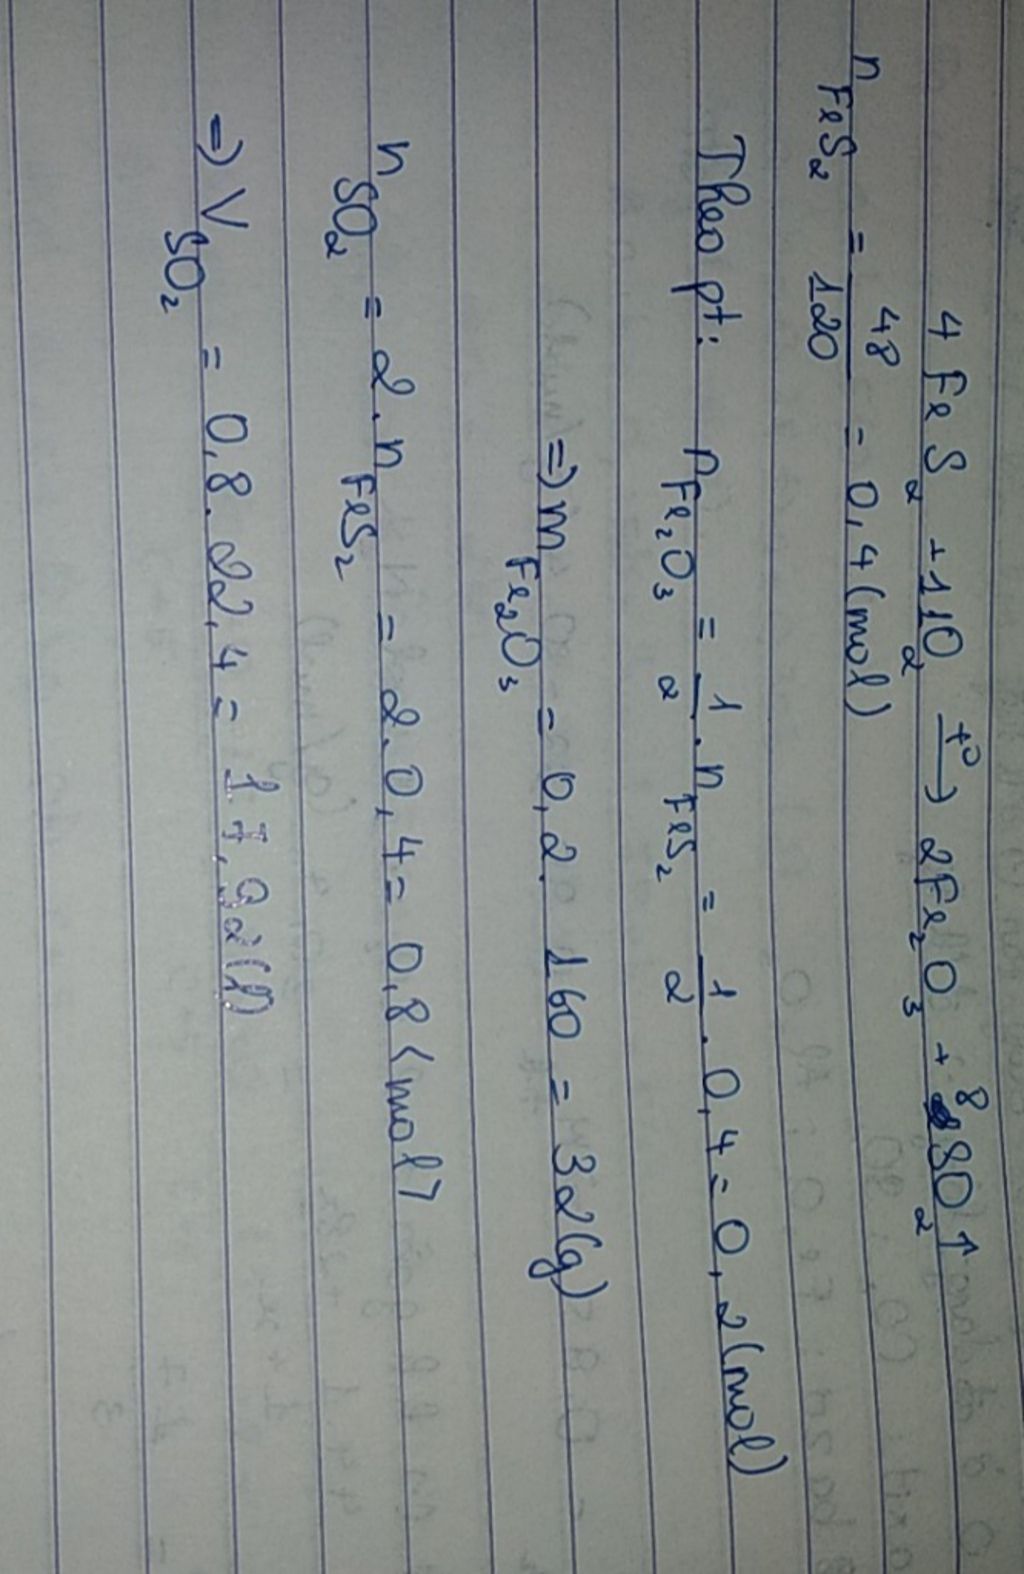 4FeS₂ + 11O₂ →(t°) 2Fe₂O₃ + 8SO₂↑
n FeS₂ = 48/120 = 0,4 (mol)
Theo pt: n Fe₂O₃ = 1/2 . n FeS₂ = 1/2 . 0,4 = 0,2 (mol)
=> m Fe₂O₃ = 0,2 . 160 = 32 (g)
n SO₂ = 2 . n FeS₂ = 2 . 0,4 = 0,8 (mol)
=> V SO₂ = 0,8 . 22,4 = 17,92 (l)